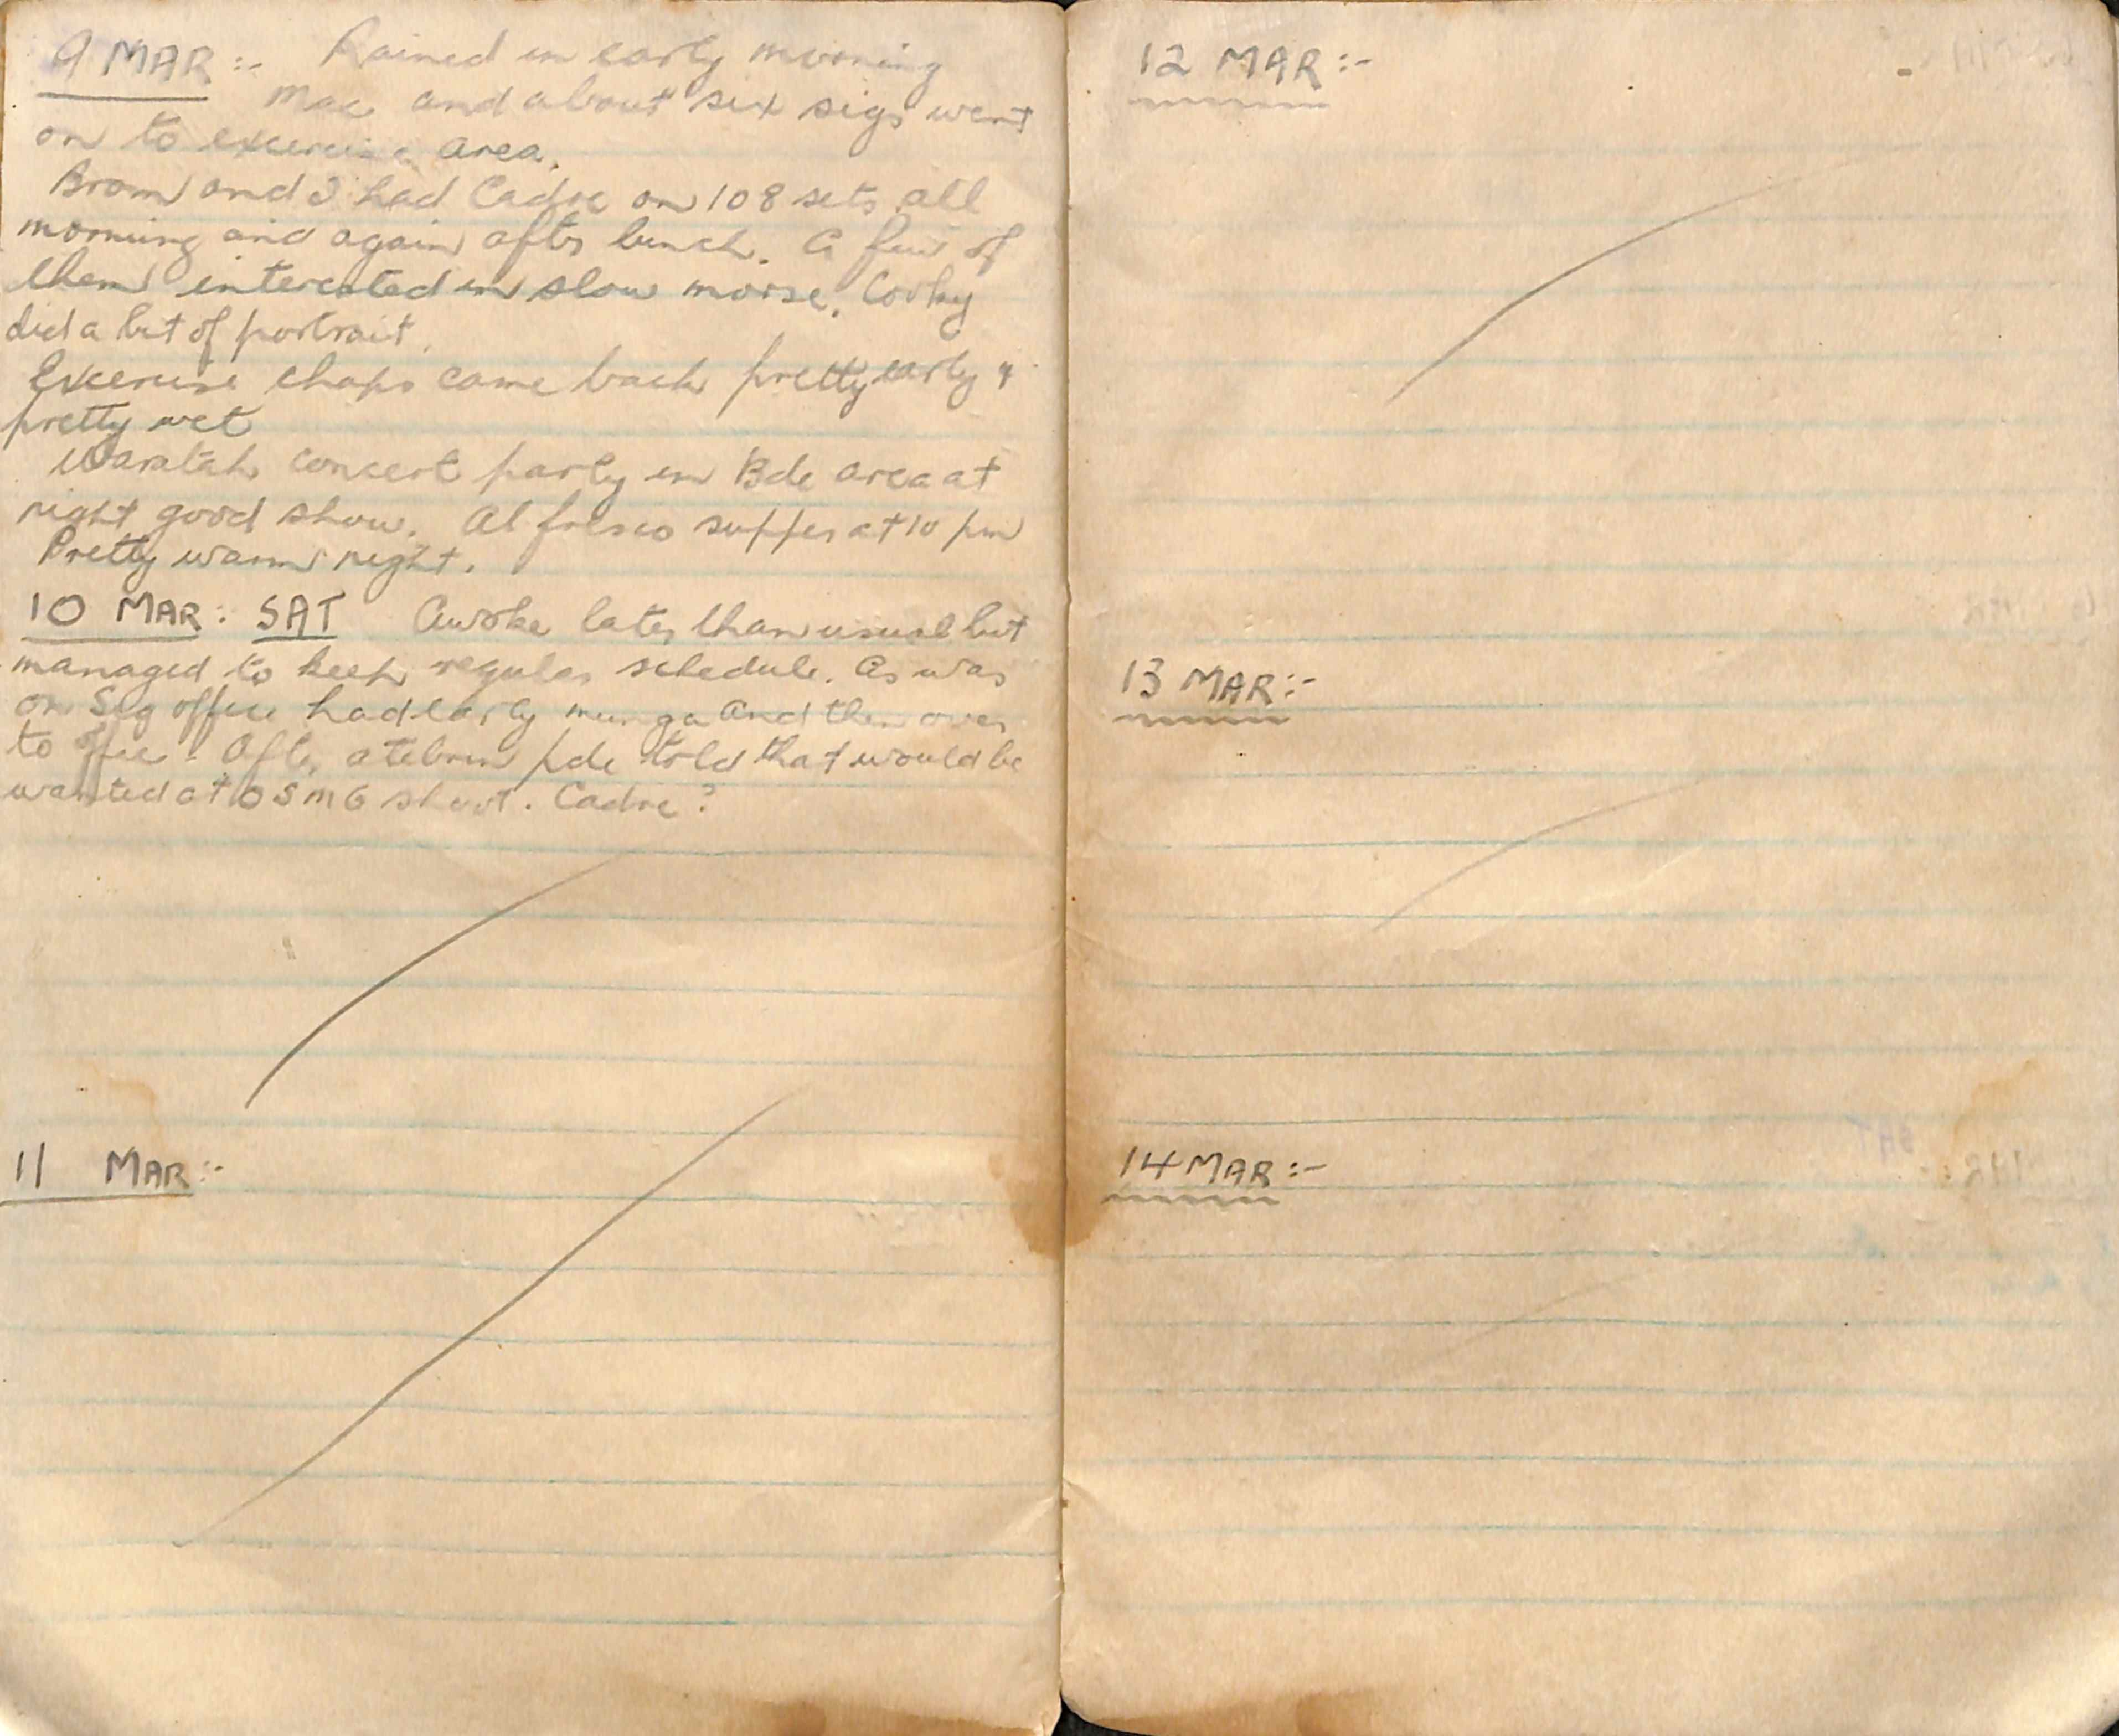 9 MAR :- Rained in early morning
Mac and about six sigs went
on to excercise area.
Brom and I had Cadre on 108 sets all
morning and again after lunch. A few of
them interested in slow morse. Cooky
did a bit of portrait.
Excercise chaps came back pretty early &
pretty wet
Waratah concert party in Bde area at
night good show. Al fresco supper at 10 pm
Pretty warm night.
10 MAR : SAT Awoke later than usual but
managed to keep regular schedule. As was
on Sig office had early munga and then over
to office. After atebrin pde told that would be
wanted at OSMG shoot. Cadre?
11 MAR :-
12 MAR :-
13 MAR :-
14 MAR :-